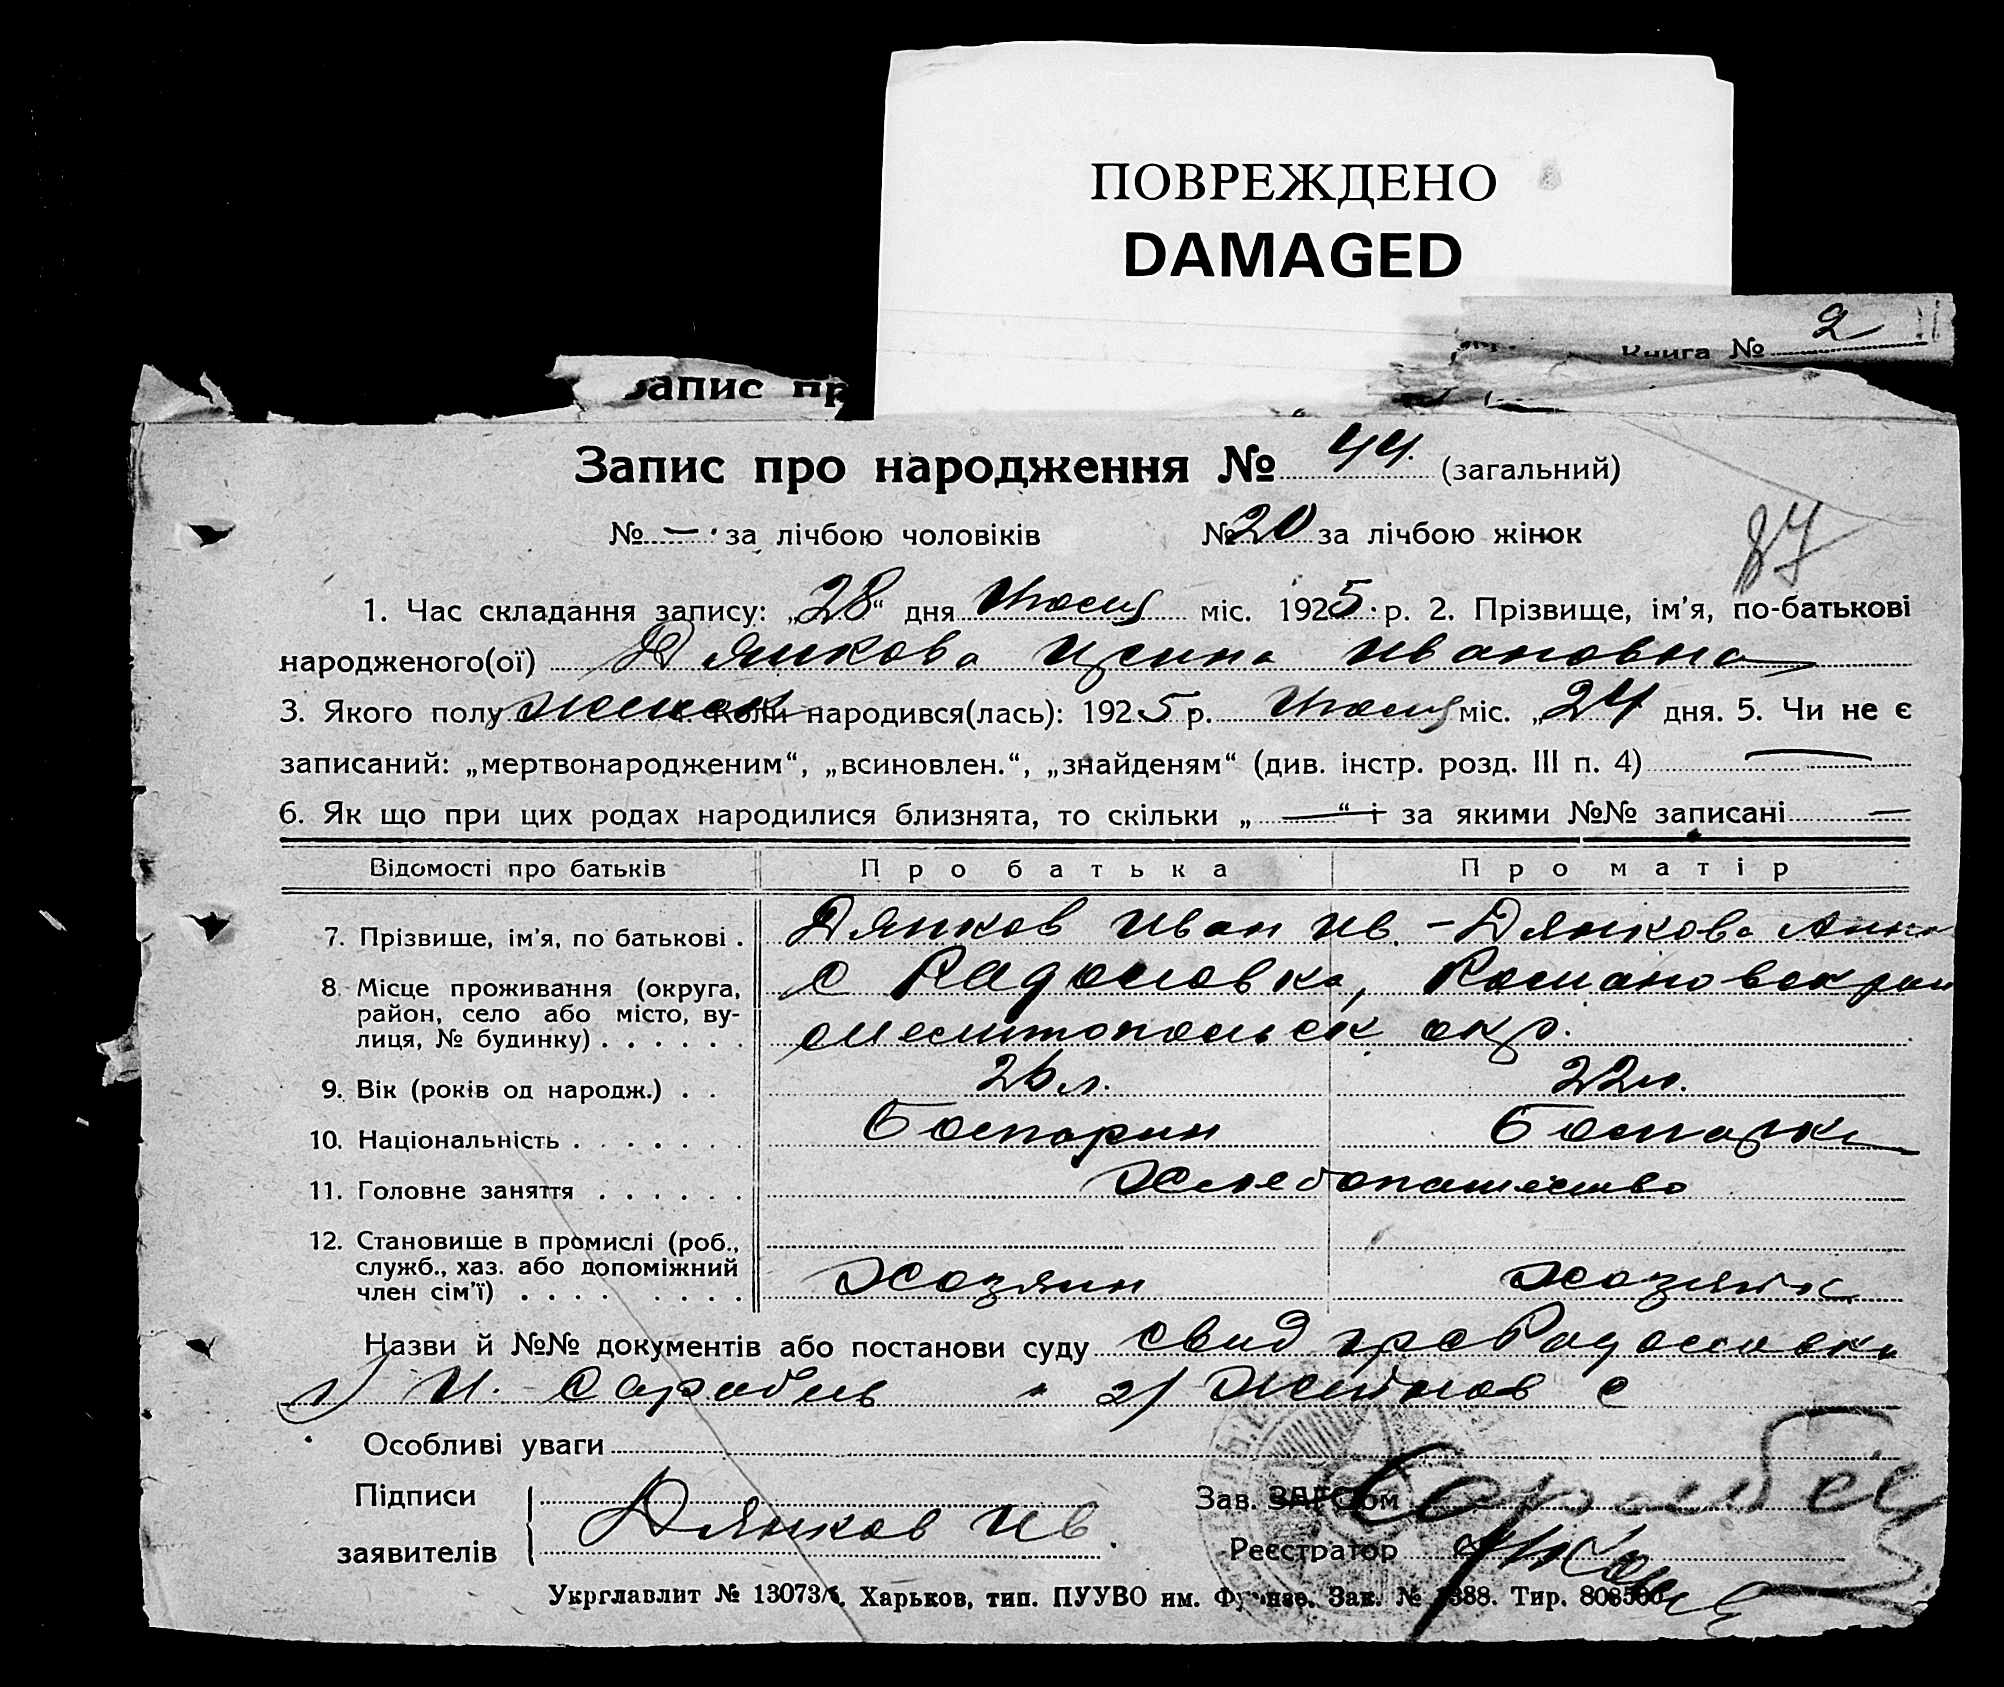 ПОВРЕЖДЕНО
DAMAGED
Книга № 2
Запис пр
Запис про народження № 44. (загальний)
№ – . за лічбою чоловіків № 20 за лічбою жінок
87
1. Час складання запису: „28“ дня міс. 1925 р. 2. Прізвище, ім'я, по-батькові
народженого(ої) Дянкова Ирина Ивановна
3. Якого полу женск Коли народився(лась): 1925 р. міс. „24 дня. 5. Чи не є
записаний: „мертвонародженим“, „всиновлен.“, „знайденям“ (див. інстр. розд. III п. 4) —
6. Як що при цих родах народилися близнята, то скільки „ — “ і за якими №№ записані —
Відомості про батьків Про батька Про матір
7. Прізвище, ім'я, по батькові . Дянков Иван Ив. – Дянкова Анна
8. Місце проживання (округа, с Радоловка, Романовск рай
район, село або місто, ву-
лиця, № будинку) . . . . . . Мелитопольск окр.
9. Вік (років од народж.) . . 26 л. 22 л.
10. Національність . . . . . . Болгарин Болгарка
11. Головне заняття . . . . . . Хлебопашество
12. Становище в промислі (роб.,
служб., хаз. або допоміжний
член сім'ї) . . . . . . . . Хозяин хозяйк
Назви й №№ документів або постанови суду свид
1) И. Сарабеев 2) с
Особливі уваги
Підписи
заявителів Дянков Ив
Зав. ЗАГС'ом
Реєстратор
Укрглавлит № 13073/б. Харьков, тип. ПУУВО им. Фрунзе. Зак. № 388. Тир. 808500